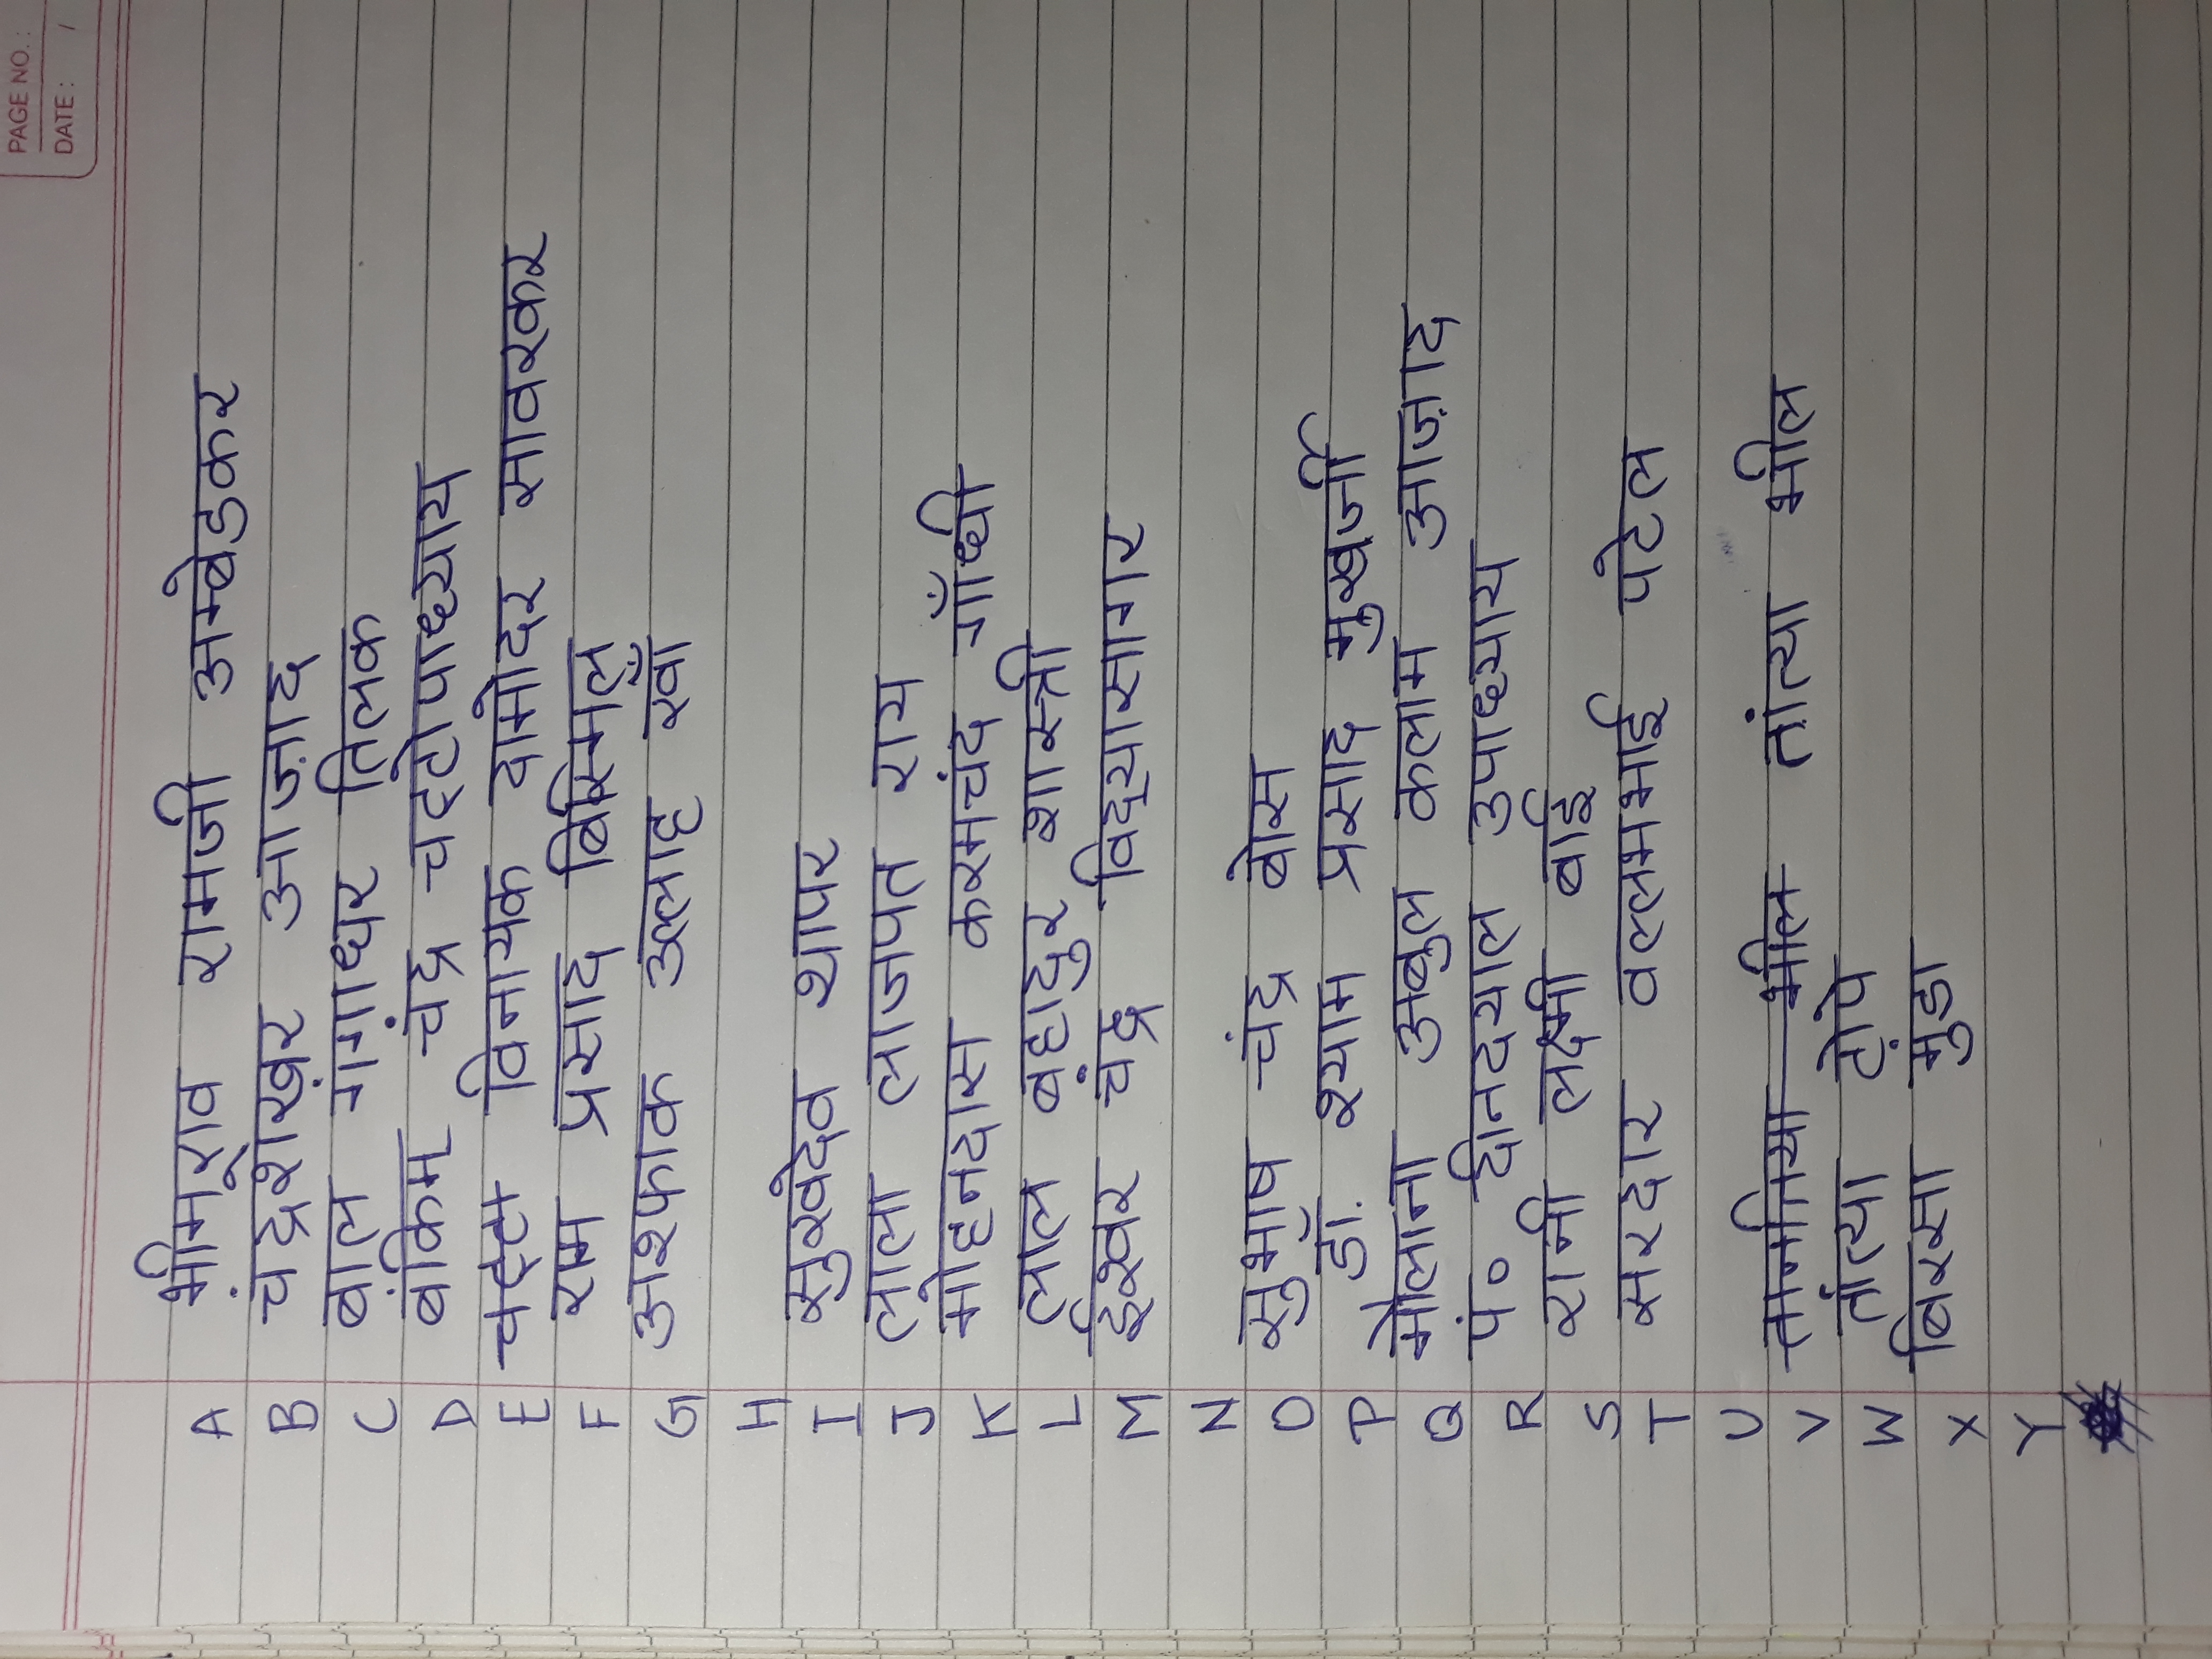 PAGE NO.:
DATE: /
A भीमराव रामजी अम्बेडकर
B चंद्रशेखर आज़ाद
C बाल गंगाधर तिलक
D बंकिम चंद्र चट्टोपाध्याय
E विनायक दामोदर सावरकर
F राम प्रसाद बिस्मिल
G अश्फाक उल्लाह खाँ
H
I सुखदेव थापर
J लाला लाजपत राय
K मोहनदास करमचंद गाँधी
L लाल बहादुर शास्त्री
M ईश्वर चंद्र विद्यासागर
N
O सुभाष चंद्र बोस
P डॉ. श्याम प्रसाद मुखर्जी
Q मौलाना अबुल कलाम आज़ाद
R पं० दीनदयाल उपाध्याय
S रानी लक्ष्मी बाई
T सरदार वल्लभभाई पटेल
U
V तानतिया भील तांत्या भील
W तांत्या टोपे
X बिरसा मुंडा
Y